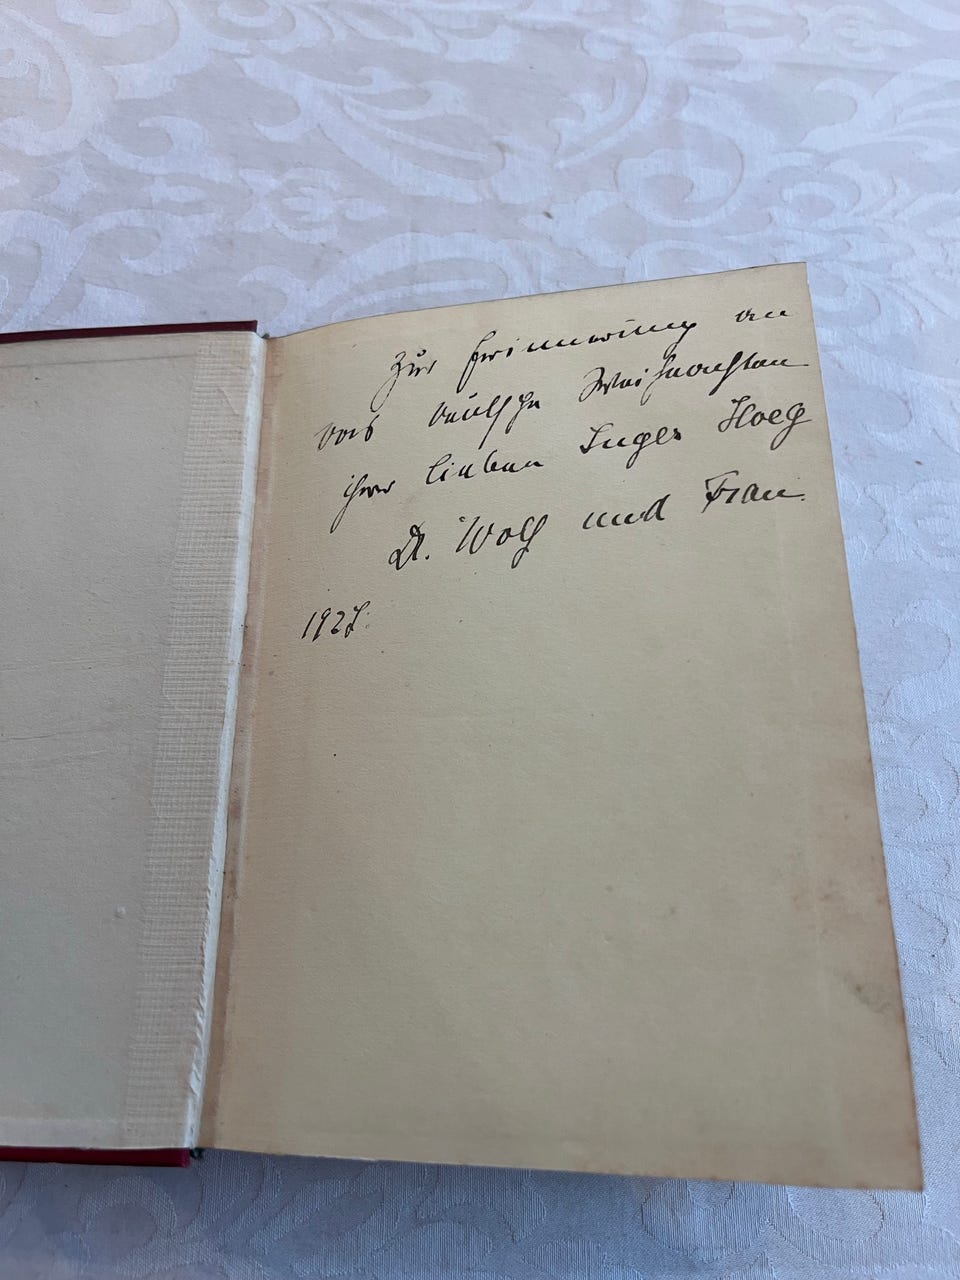 Zur Erinnerung an
das deutsche Weihnachten
ihrer lieben Inger Hoeg
Dr. Wolf und Frau.
1927.